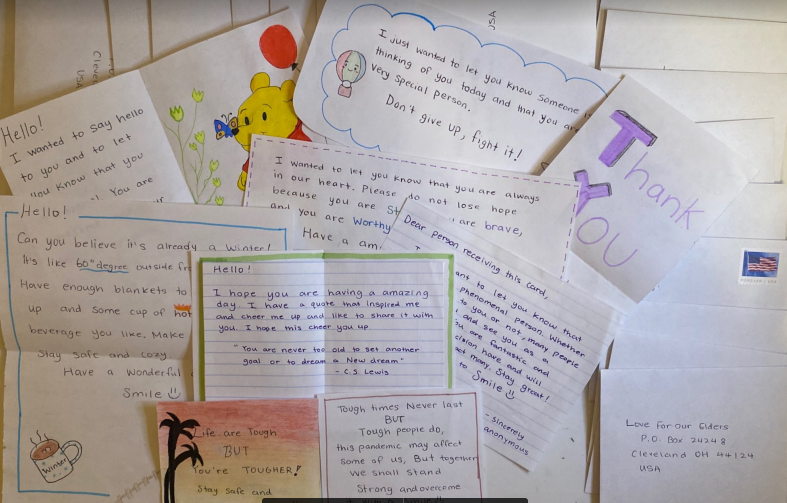 USA
USA
Hello!
I wanted to say hello
to you and to let
you know that you
You are
I just wanted to let you know someone is
thinking of you today and that you are
very special person.
Don't give up, fight it!
Thank
You
I wanted to let you know that you are always
in our heart. Please do not lose hope
because you are are brave,
and you are Worthy
Have a
Dear person receiving this card,
to let you know that
phenomenal person. Whether
you or not, many people
and see you as a
are fantastic and
have and will
many. Stay great!
to Smile
- Sincerely
anonymous
Hello!
Can you believe it's already a Winter!
It's like 60°degree outside
Have enough blankets to
up and some cup of hot
beverage you like. Make
Stay safe and cozy
Have a Wonderful
Smile
Winter
Hello!
I hope you are having a amazing
day. I have a quote that inspired me
and cheer me up and like to share it with
you. I hope this cheer you up
"You are never too old to set another
goal or to dream a New dream"
- C.S. Lewis
Life are Tough
BUT
You're TOUGHER!
Stay safe and
Tough times Never last
BUT
Tough people do,
this pandemic may affect
some of us, But together
We shall Stand
Strong and overcome
Love For Our Elders
P.O. Box 24248
Cleveland OH 44124
USA